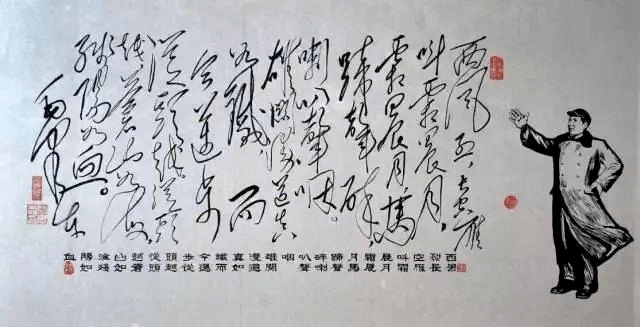 西风烈长空雁
叫霜晨月
霜晨月马
蹄聲碎
喇叭聲咽
雄關漫道真
如鐵而
今迈步
從頭越從頭
越苍山如海
残陽如血。
毛泽东
西風
烈長
空雁
叫霜
晨月
霜晨
月馬
蹄聲
碎喇
叭聲
咽
雄關
漫道
真如
鐵而
今邁
步從
頭越
從頭
越蒼
山如
海殘
陽如
血